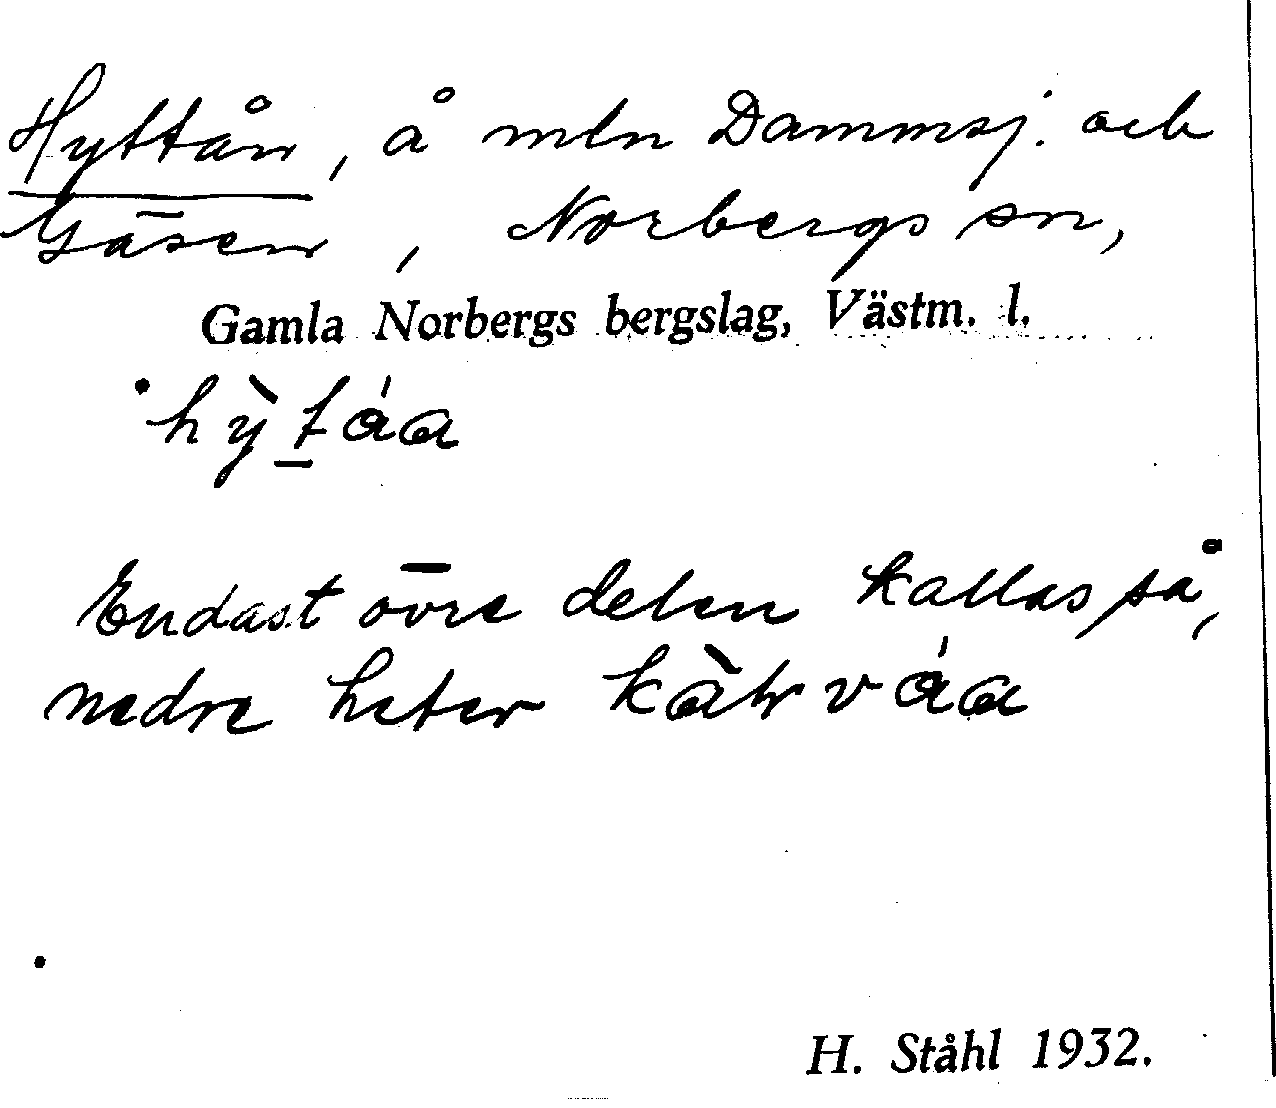 Hyttån, å mln Dammsj. och
Gäsen, Norbergs sn,
Gamla Norbergs bergslag, Västm. l.
Endast övre delen kallas så,
nedre heter
H. Ståhl 1932.